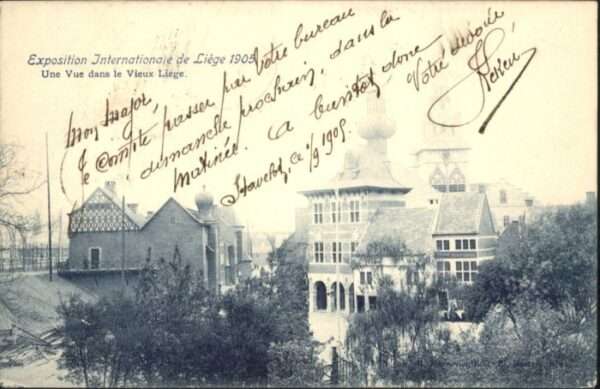 Exposition Internationale de Liège 1905.
Une Vue dans le Vieux Liège.
Mon major,
Je compte passer par votre bureau
dimanche prochain, dans la
matinée. A bientôt donc
Votre dévoué
Stavelot, le 1/9 1905